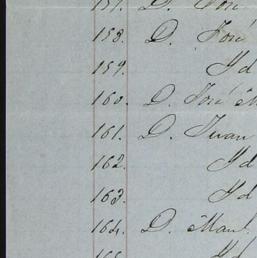 157. D. José
158. D. José
159. Yd
160. D. José M
161. D. Juan
162. Yd
163. Yd
164. D. Man.
165. Yd